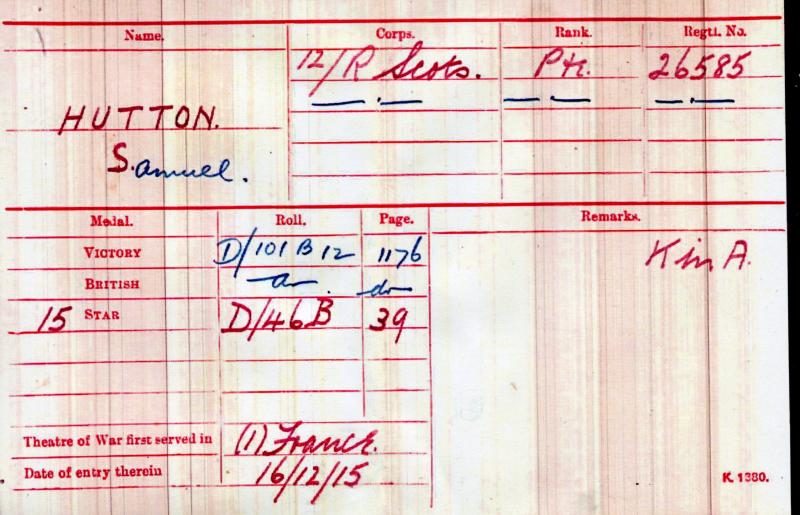 Name. Corps. Rank. Regtl. No.
12/R Scots. Pte. 26585
HUTTON.
Samuel.
Medal. Roll. Page. Remarks.
VICTORY D/101 B 12 1176 K in A.
BRITISH do do
15 STAR D/46B 39
Theatre of War first served in (1) France.
Date of entry therein 16/12/15
K. 1380.